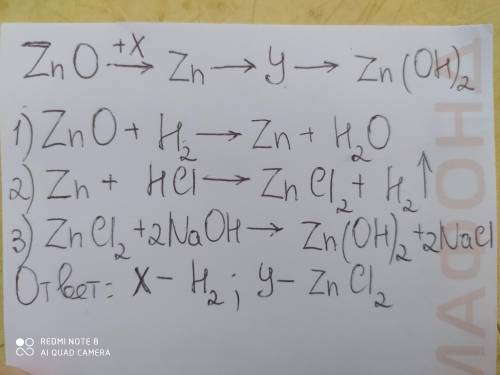 ZnO +X → Zn → У → Zn(OH)₂
1) ZnO + H₂ → Zn + H₂O
2) Zn + HCl → ZnCl₂ + H₂↑
3) ZnCl₂ + 2NaOH → Zn(OH)₂ + 2NaCl
Ответ: X – H₂; У – ZnCl₂
МАФОНД
REDMI NOTE 8
AI QUAD CAMERA